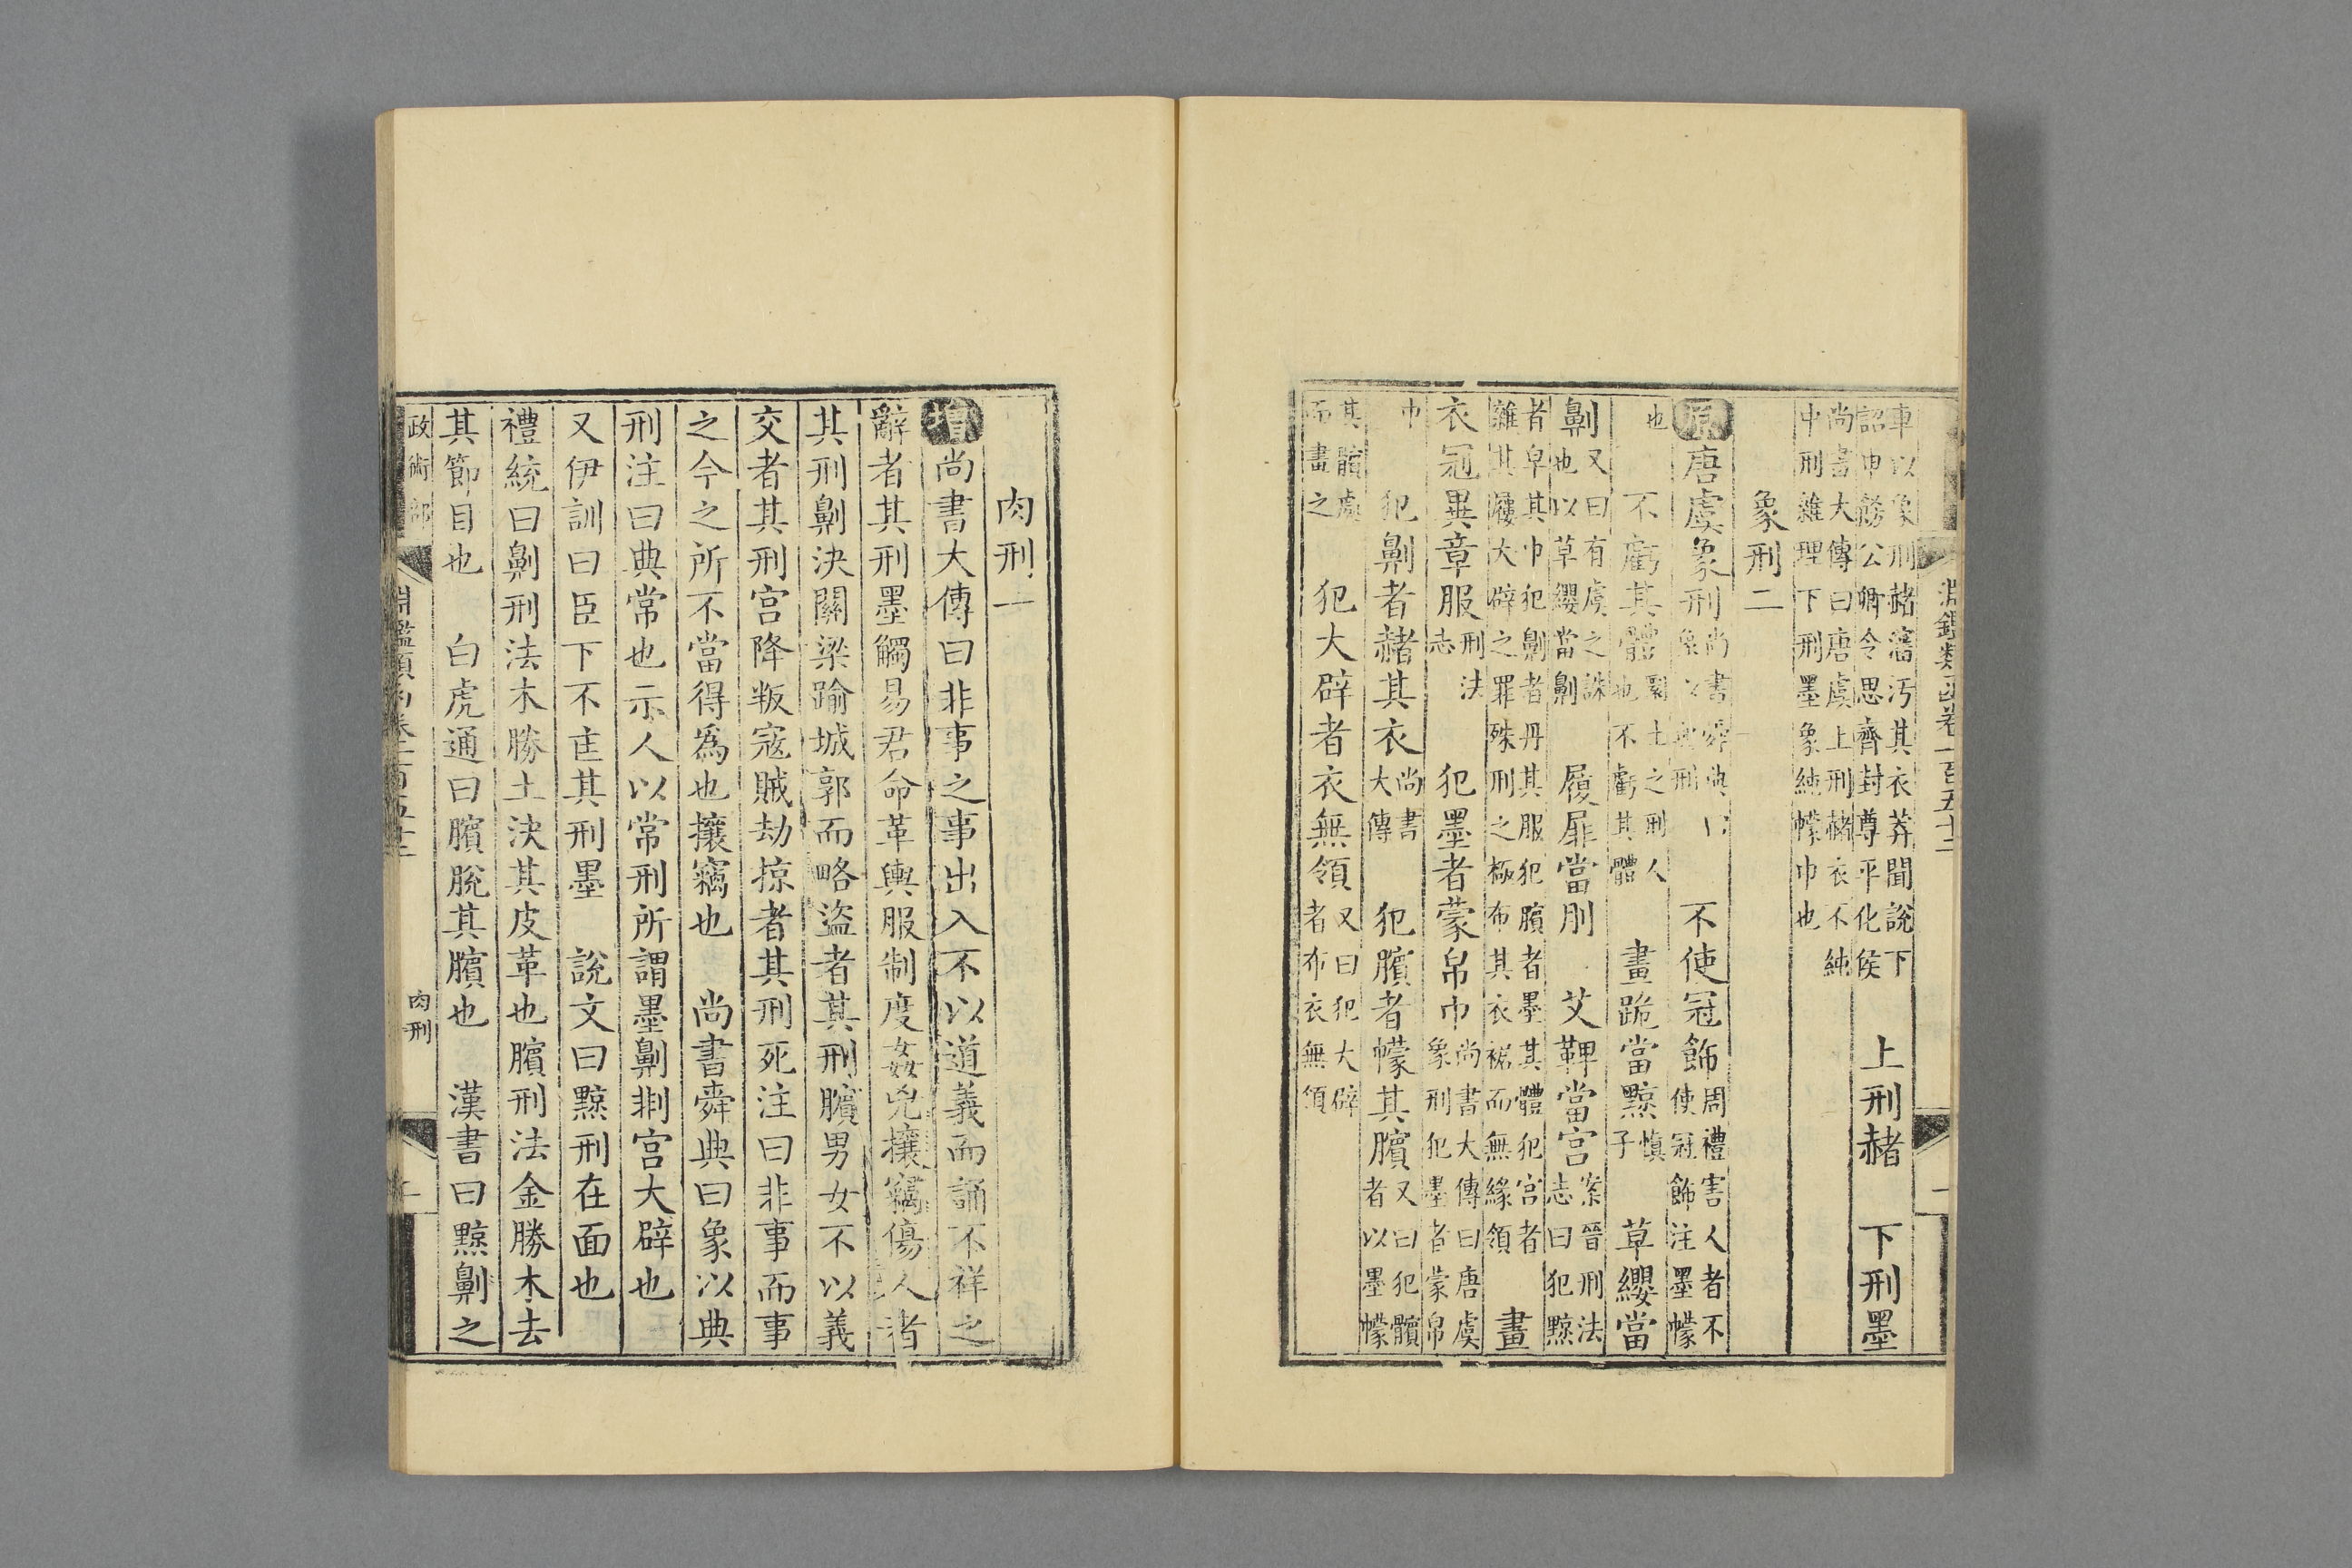 淵鑑類函卷一百五十二
車以象刑赭瀋汚其衣莽聞說下
詔申飭公卿令思齊封尊平化侯
上刑赭 下刑墨
尚書大傳曰唐虞上刑赭衣不純
中刑雜理下刑墨象純幪巾也
象刑二
原唐虞象刑尚書舜典曰
象以典刑
不使冠飾周禮害人者不
使冠飾注墨幪
也
不虧其體圜土之刑人
也不虧其體
畫跪當黥慎
子
草纓當
劓又曰有虞之誅
也以草纓當劓
履屝當刖 艾鞸當宮案晉刑法
志曰犯黥
者皁其巾犯劓者丹其服犯臏者墨其體犯宮者
雜其屨大辟之罪殊刑之極布其衣裾而無緣領
畫
衣冠異章服刑法
志
犯墨者蒙帛巾尚書大傳曰唐虞
象刑犯墨者蒙帛
巾
犯劓者赭其衣尚書
大傳
犯臏者幪其臏又曰犯髕
者以墨幪
其髕處
而畫之
犯大辟者衣無領又曰犯大辟
者布衣無領
肉刑一
增尚書大傳曰非事之事出入不以道義而誦不祥之
辭者其刑墨觸易君命革輿服制度姦兇攘竊傷人者
其刑劓決關梁踰城郭而略盜者其刑臏男女不以義
交者其刑宮降叛寇賊劫掠者其刑死注曰非事而事
之今之所不當得爲也攘竊也 尚書舜典曰象以典
刑注曰典常也示人以常刑所謂墨劓剕宮大辟也
又伊訓曰臣下不㐬其刑墨 說文曰黥刑在面也
禮統曰劓刑法木勝土決其皮革也臏刑法金勝木去
其節目也 白虎通曰臏脫其臏也 漢書曰黥劓之
政術部 淵鑑類函卷一百五十二 肉刑